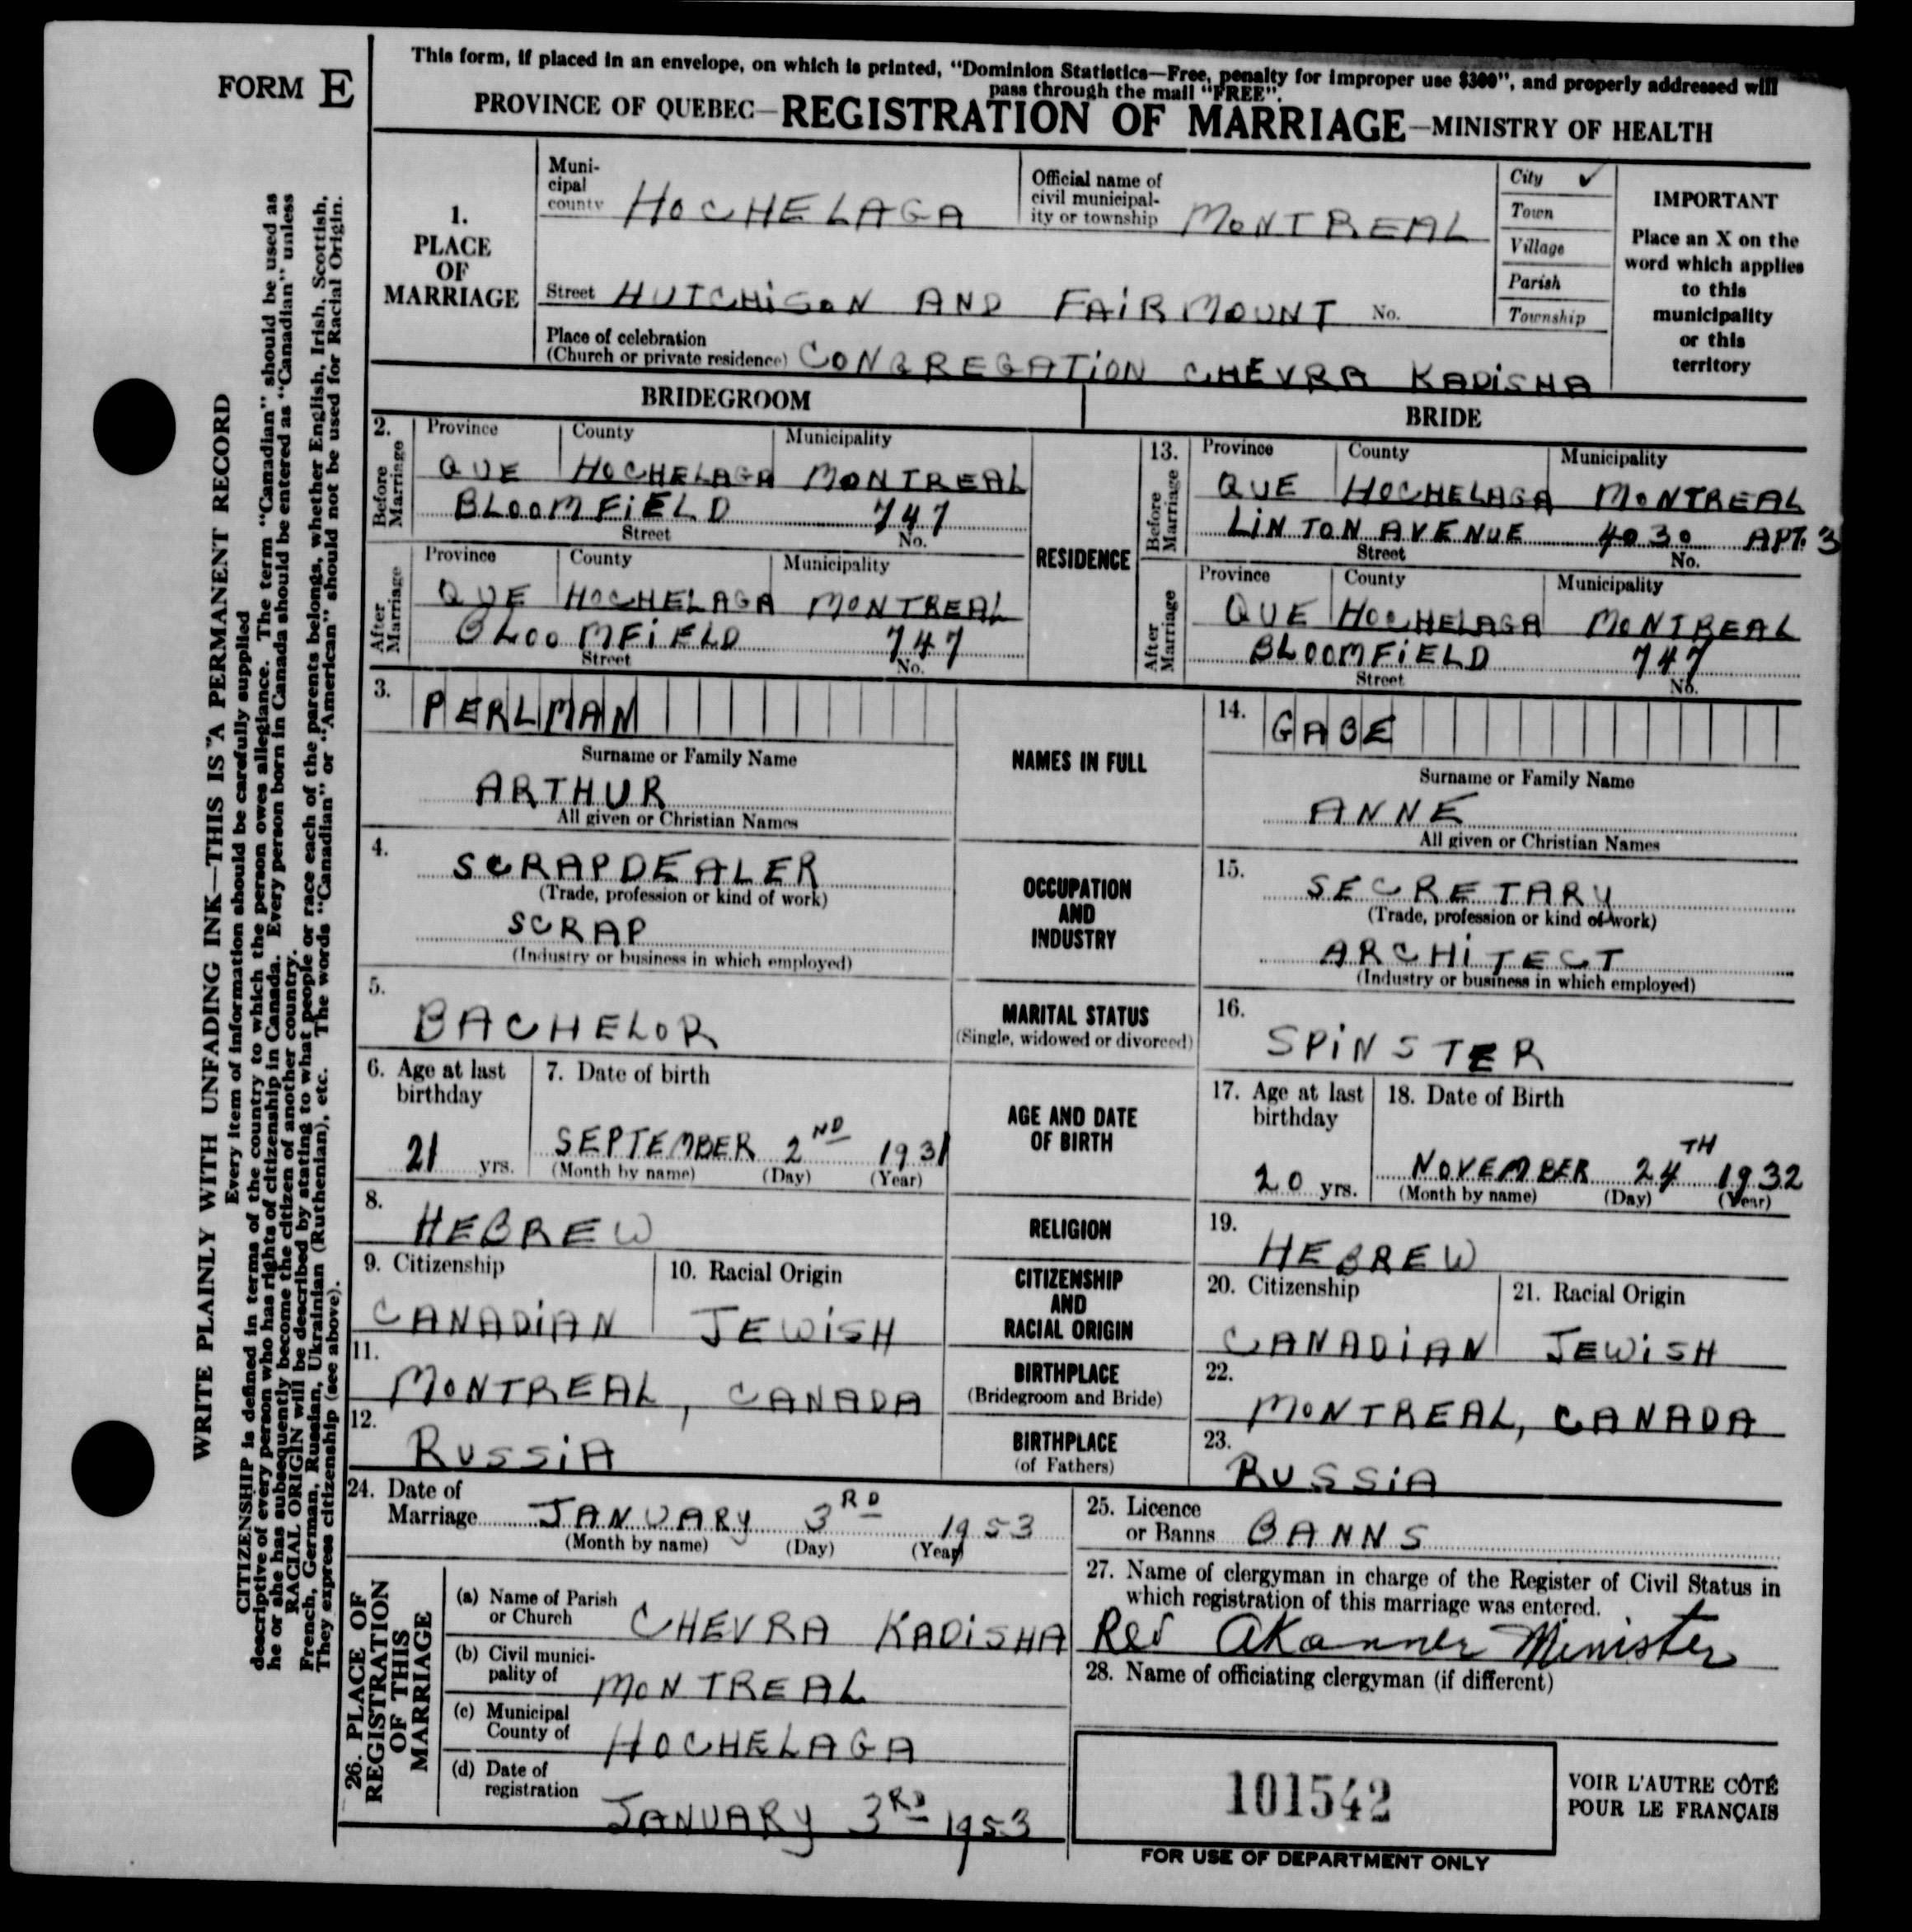 FORM E
This form, if placed in an envelope, on which is printed, "Dominion Statistics—Free, penalty for improper use $300", and properly addressed will
pass through the mail "FREE".
PROVINCE OF QUEBEC—REGISTRATION OF MARRIAGE—MINISTRY OF HEALTH
WRITE PLAINLY WITH UNFADING INK—THIS IS A PERMANENT RECORD
Every item of information should be carefully supplied
CITIZENSHIP is defined in terms of the country to which the person owes allegiance. The term "Canadian" should be used as
descriptive of every person who has rights of citizenship in Canada. Every person born in Canada should be entered as "Canadian" unless
he or she has subsequently become the citizen of another country.
RACIAL ORIGIN will be described by stating to what people or race each of the parents belongs, whether English, Irish, Scottish,
French, German, Russian, Ukrainian (Ruthenian), etc. The words "Canadian" or "American" should not be used for Racial Origin.
They express citizenship (see above).
1.
PLACE
OF
MARRIAGE
Muni-
cipal
county HOCHELAGA
Official name of
civil municipal-
ity or township MONTREAL
City ✓
Town
Village
Parish
Township
IMPORTANT
Place an X on the
word which applies
to this
municipality
or this
territory
Street HUTCHISON AND FAIRMOUNT No.
Place of celebration
(Church or private residence) CONGREGATION CHEVRA KADISHA
BRIDEGROOM
BRIDE
2.
Before
Marriage
Province County Municipality
QUE HOCHELAGA MONTREAL
BLOOMFIELD 747
Street No.
After
Marriage
Province County Municipality
QUE HOCHELAGA MONTREAL
BLOOMFIELD 747
Street No.
RESIDENCE
13.
Before
Marriage
Province County Municipality
QUE HOCHELAGA MONTREAL
LINTON AVENUE 4030 APT. 3
Street No.
After
Marriage
Province County Municipality
QUE HOCHELAGA MONTREAL
BLOOMFIELD 747
Street No.
3. PERLMAN
Surname or Family Name
ARTHUR
All given or Christian Names
NAMES IN FULL
14. GABE
Surname or Family Name
ANNE
All given or Christian Names
4. SCRAPDEALER
(Trade, profession or kind of work)
SCRAP
(Industry or business in which employed)
OCCUPATION
AND
INDUSTRY
15. SECRETARY
(Trade, profession or kind of work)
ARCHITECT
(Industry or business in which employed)
5. BACHELOR
MARITAL STATUS
(Single, widowed or divorced)
16. SPINSTER
6. Age at last
birthday
21 yrs.
7. Date of birth
SEPTEMBER 2ND 1931
(Month by name) (Day) (Year)
AGE AND DATE
OF BIRTH
17. Age at last
birthday
20 yrs.
18. Date of Birth
NOVEMBER 24TH 1932
(Month by name) (Day) (Year)
8. HEBREW
RELIGION
19. HEBREW
9. Citizenship
CANADIAN
10. Racial Origin
JEWISH
CITIZENSHIP
AND
RACIAL ORIGIN
20. Citizenship
CANADIAN
21. Racial Origin
JEWISH
11. MONTREAL, CANADA
BIRTHPLACE
(Bridegroom and Bride)
22. MONTREAL, CANADA
12. RUSSIA
BIRTHPLACE
(of Fathers)
23. RUSSIA
24. Date of
Marriage JANUARY 3RD 1953
(Month by name) (Day) (Year)
25. Licence
or Banns BANNS
26. PLACE OF
REGISTRATION
OF THIS
MARRIAGE
(a) Name of Parish
or Church CHEVRA KADISHA
(b) Civil munici-
pality of MONTREAL
(c) Municipal
County of HOCHELAGA
(d) Date of
registration JANUARY 3RD 1953
27. Name of clergyman in charge of the Register of Civil Status in
which registration of this marriage was entered.
Rev AKanner Minister
28. Name of officiating clergyman (if different)
101542
FOR USE OF DEPARTMENT ONLY
VOIR L'AUTRE CÔTÉ
POUR LE FRANÇAIS